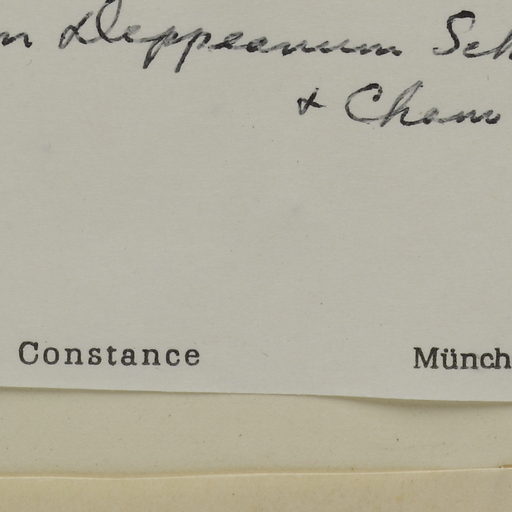 n Deppeanum Sch
& Cham
Constance Münch